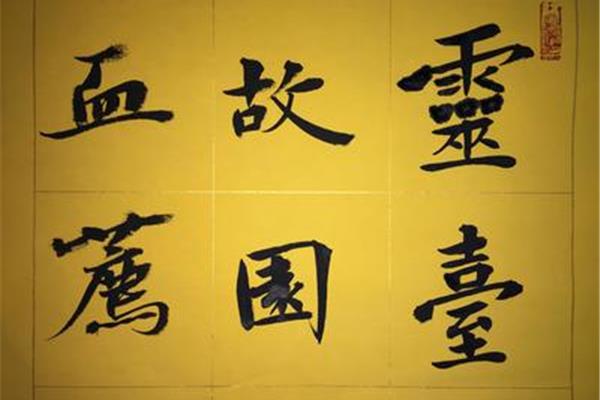 靈臺
故園
血薦